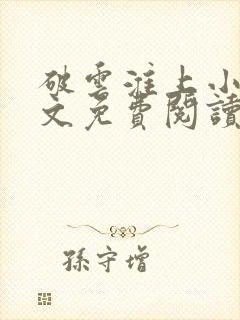 破雲淮上小
文免費閱讀
孫守增